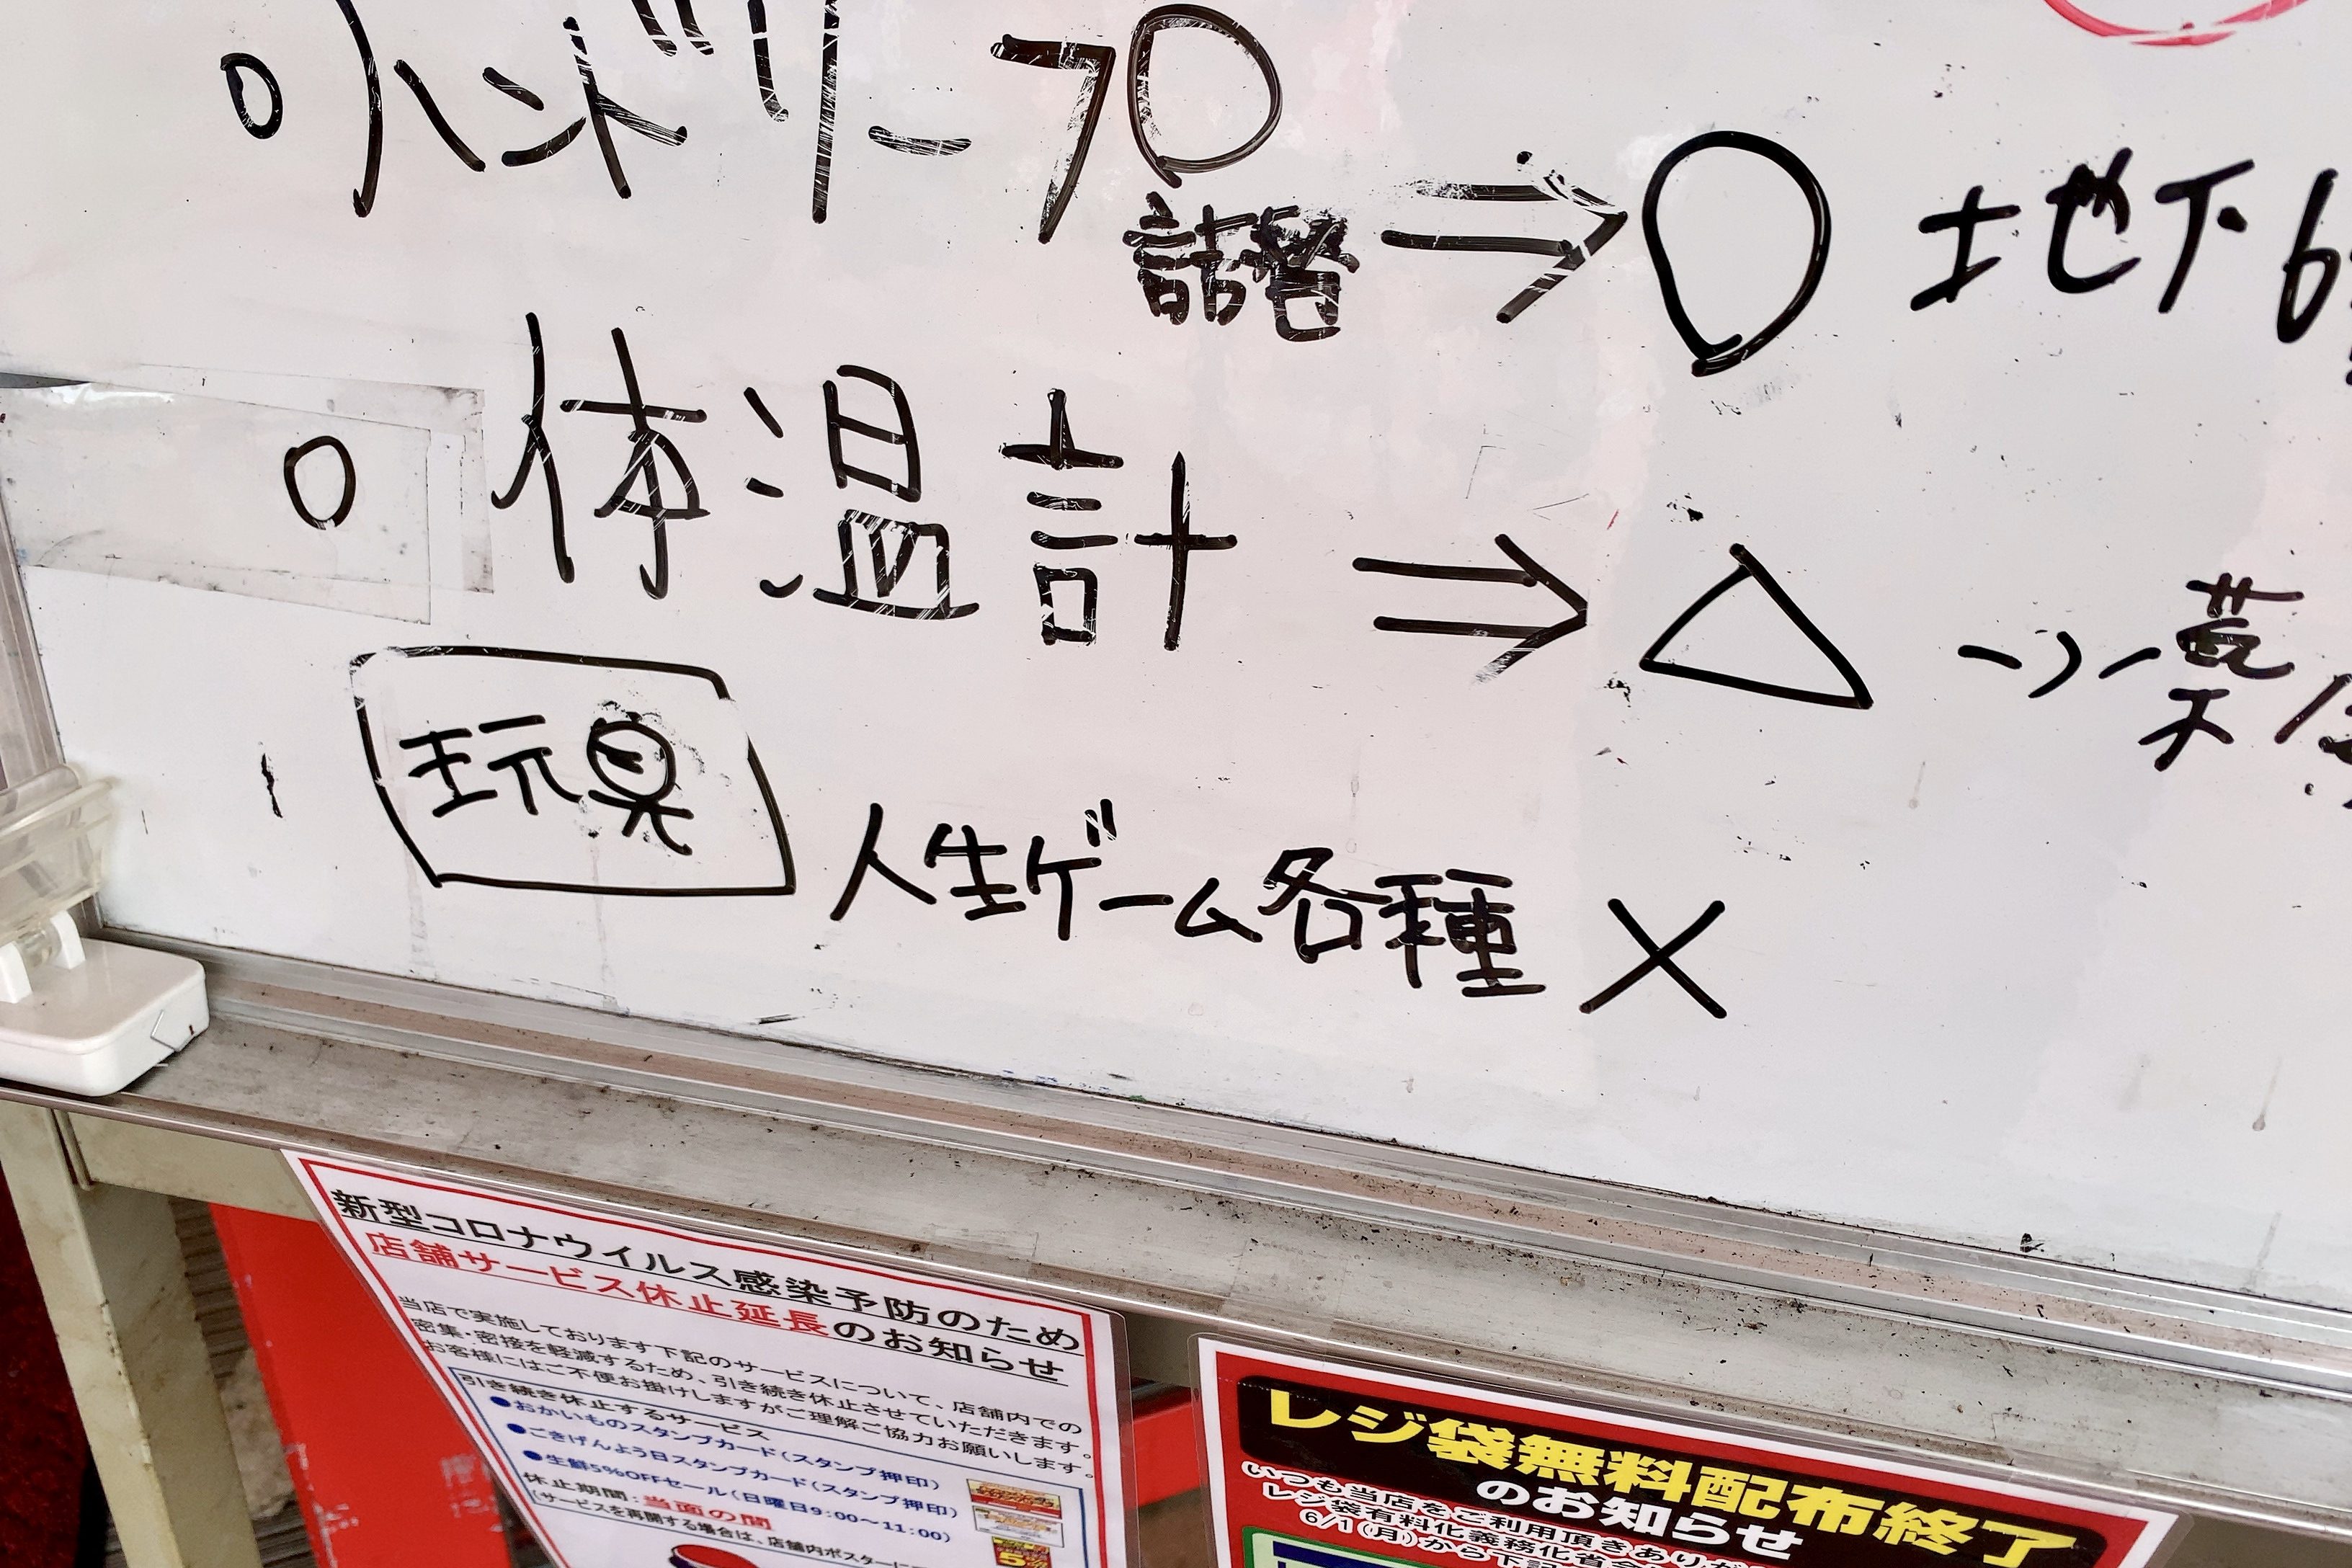 ○ ハンドソープ 詰替 ⇒ ○ 地下6
○ 体温計 ⇒ △ 薬
玩具 人生ゲーム各種 ×
新型コロナウイルス感染予防のため
店舗サービス休止延長のお知らせ
当店で実施しております下記のサービスについて、店舗内での
密集・密接を軽減するため、引き続き休止させていただきます。
お客様にはご不便お掛けしますがご理解ご協力お願いします。
引き続き休止するサービス
●おかいものスタンプカード(スタンプ押印)
●ごきげんよう日スタンプカード(スタンプ押印)
●生鮮5%OFFセール(日曜日9:00～11:00)
休止期間:当面の間
(サービスを再開する場合は、店舗内ポスターに
レジ袋無料配布終了
のお知らせ
いつも当店をご利用頂きありが
レジ袋有料化義務化省令
6/1(月)から下記